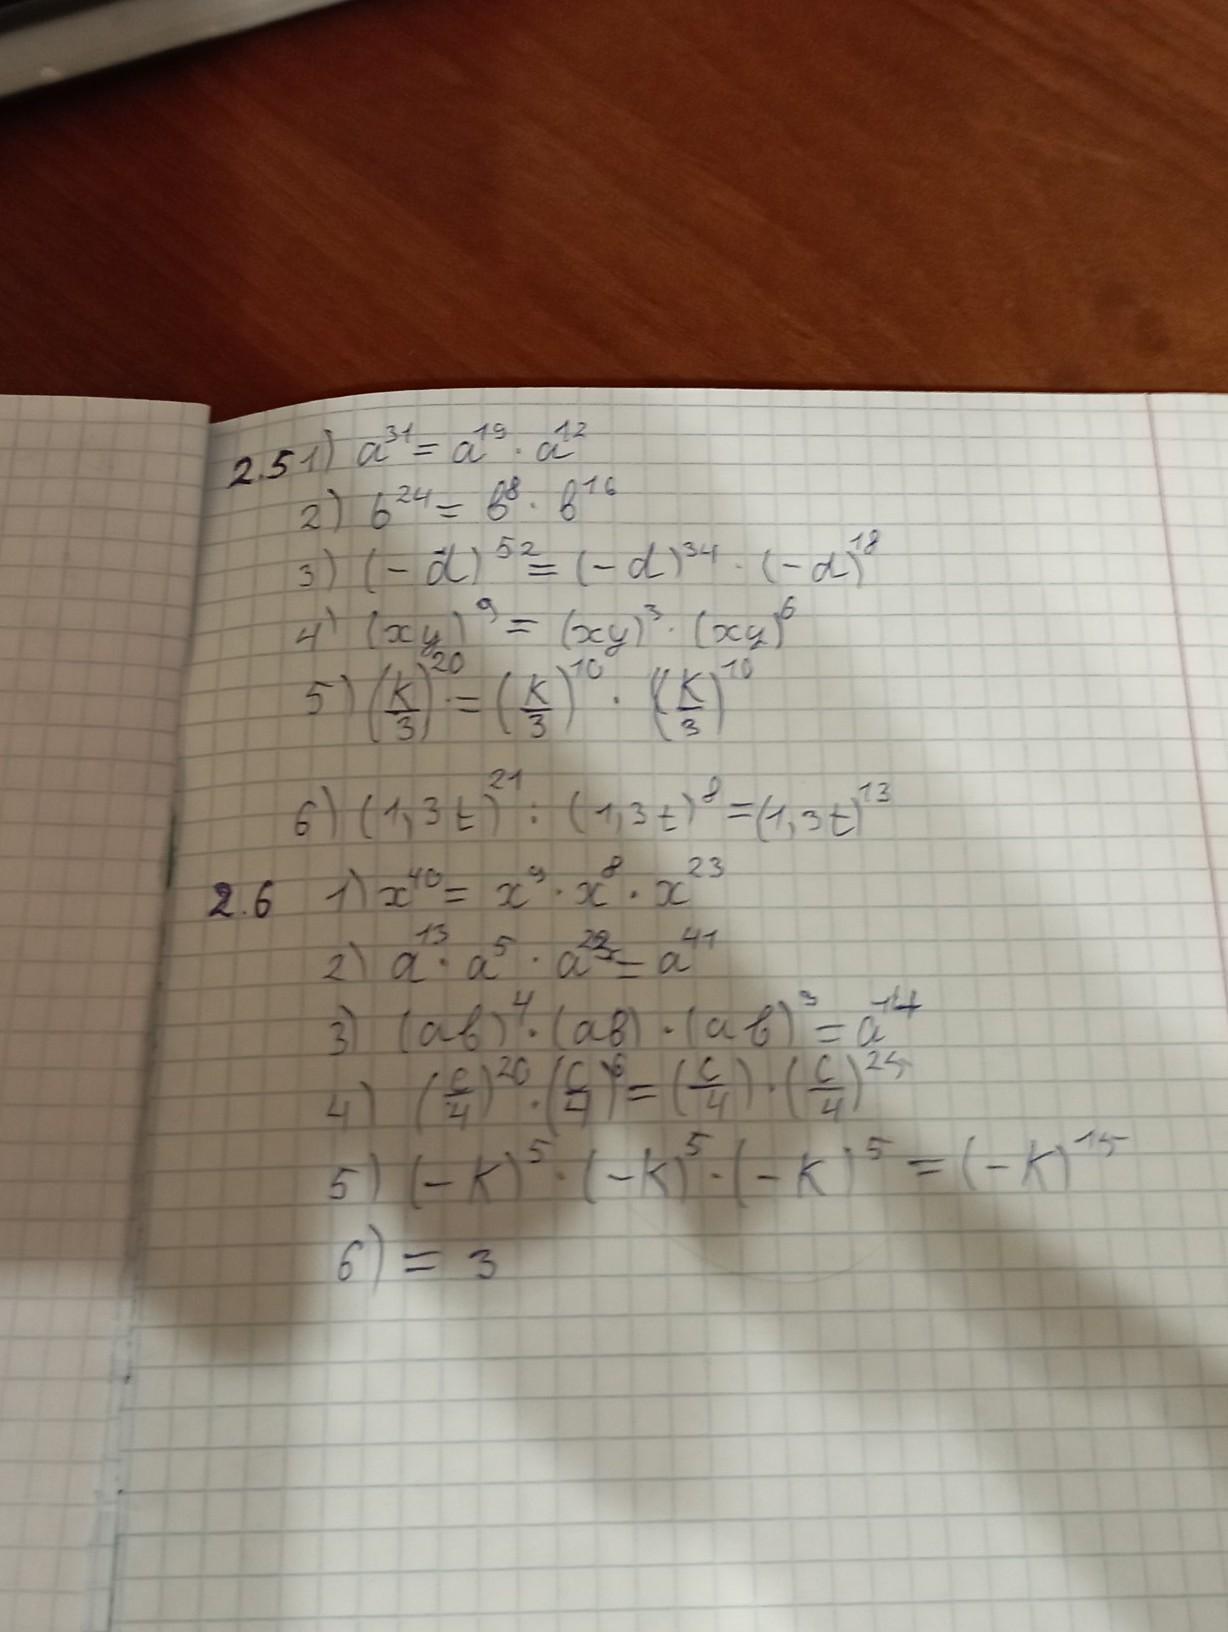 2.5 1) a³¹ = a¹⁹ · a¹²
2) b²⁴ = b⁸ · b¹⁶
3) (-d)⁵² = (-d)³⁴ · (-d)¹⁸
4) (xy)⁹ = (xy)³ · (xy)⁶
5) (k/3)²⁰ = (k/3)¹⁰ · (k/3)¹⁰
6) (1,3t)²¹ : (1,3t)⁸ = (1,3t)¹³
2.6 1) x⁴⁰ = x⁹ · x⁸ · x²³
2) a¹³ · a⁵ · a = a⁴¹
3) (ab)⁴ · (ab) · (ab)⁹ = a¹⁴
4) (c/4)²⁰ · (c/4)⁶ = (c/4) · (c/4)²⁵
5) (-k)⁵ · (-k)⁵ · (-k)⁵ = (-k)¹⁵
6) = 3